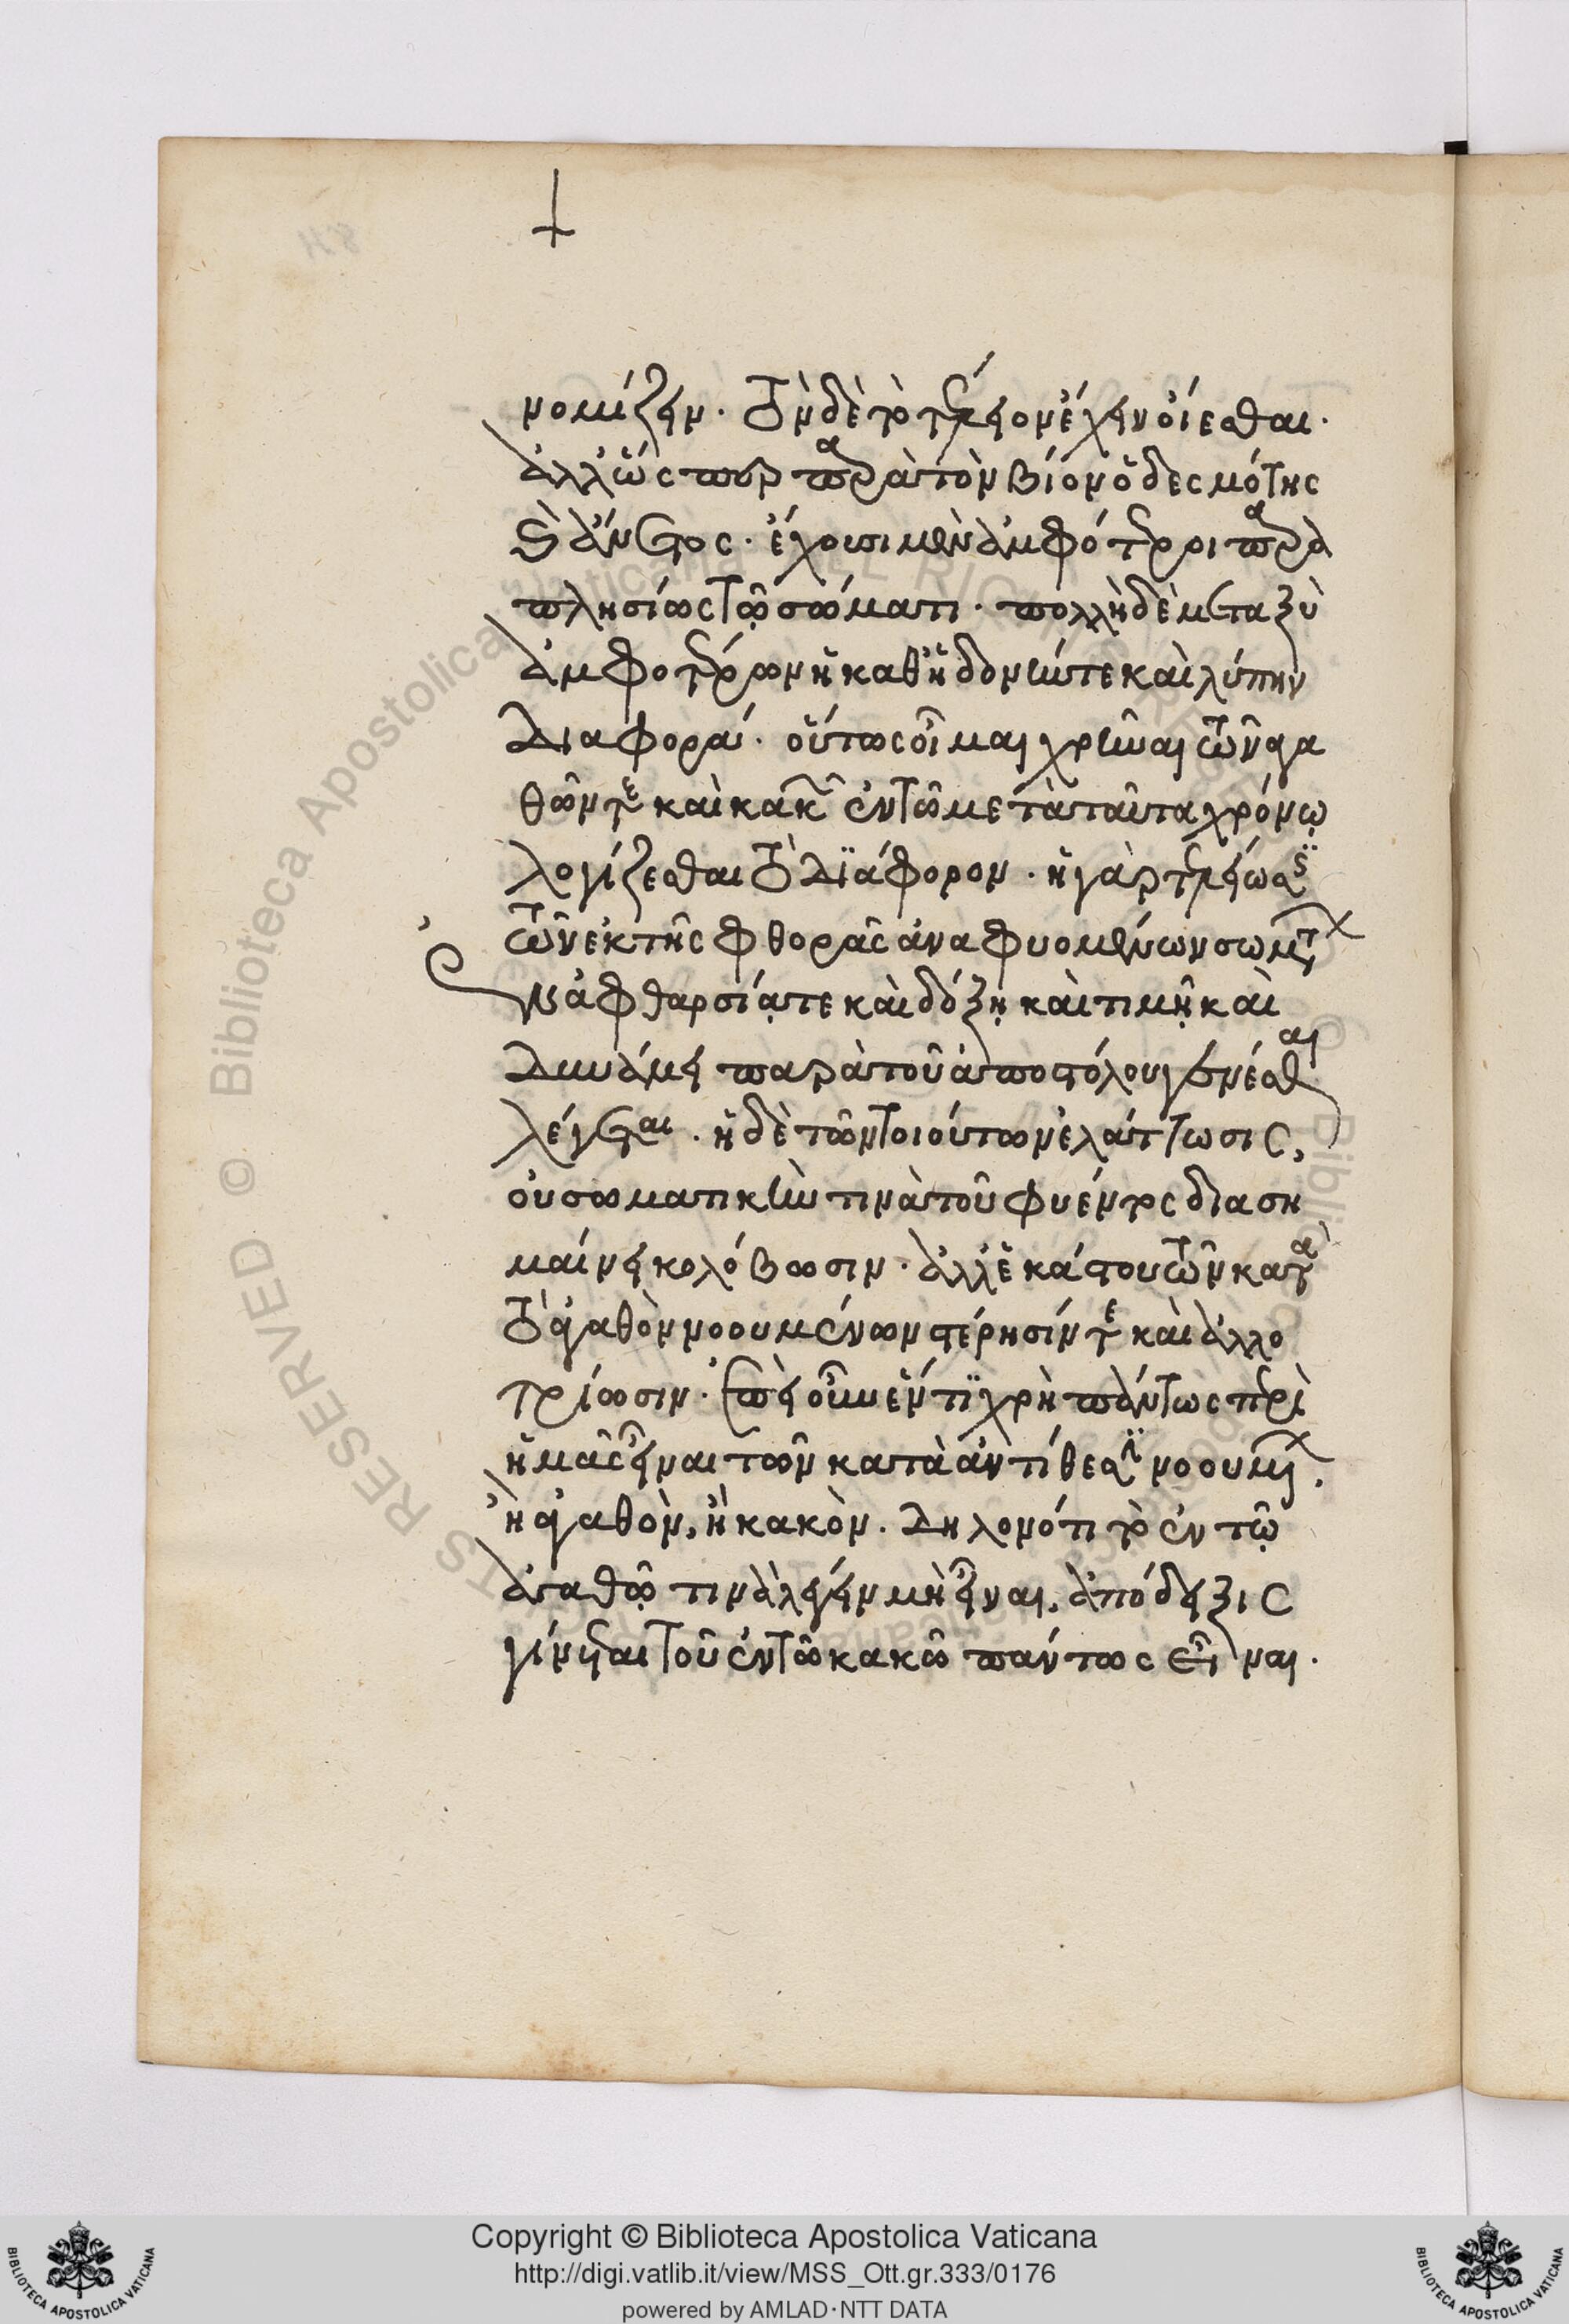 νομίζειν. τὸν δὲ τὸ τέλειον ἔχειν οἴεσθαι.
ἀλλ' ὥσπερ παρὰ τὸν βίον ὁ δεσμότης
καὶ ἄνετος. ἔχουσι μὲν ἀμφότεροι παρα
πλησίως τῷ σώματι. πολλὴ δὲ μεταξὺ
ἀμφοτέρων ἡ καθ' ἡδονήν τε καὶ λύπην
διαφορά. οὕτως οἶμαι χρῆναι τῶν ἀγα
θῶν τε καὶ κακῶν ἐν τῶ μετὰ ταῦτα χρόνῳ
λογίζεσθαι τὸ διάφορον. ἡ γὰρ τελείωσις
τῶν ἐκ τῆς φθορᾶς ἀναφυομένων σωμάτων
ἐν ἀφθαρσίᾳ τε καὶ δόξῃ καὶ τιμῇ καὶ
δυνάμει παρὰ τοῦ ἀποστόλου γενέσθαι
λέγεται. ἡ δὲ τῶν τοιούτων ἐλάττωσις,
οὐ σωματικήν τινα τοῦ φυέντος διαση
μαίνει κολόβωσιν. ἀλλ' ἑκάστου τῶν κατὰ
τὸ ἀγαθὸν νοουμένων στέρησίν τε καὶ ἀλλο
τρίωσιν. ἐπεὶ οὖν ἕν τι χρὴ πάντως περὶ
ἡμᾶς εἶναι τῶν κατὰ ἀντίθεσιν νοουμένων.
ἢ ἀγαθὸν, ἢ κακὸν. δηλονότι τὸ ἐν τῷ
ἀγαθῷ τινὰ λέγειν μὴ εἶναι, ἀπόδειξις
γίνεται τοῦ ἐν τῶ κακῶ πάντως εἶναι.
Copyright © Biblioteca Apostolica Vaticana
http://digi.vatlib.it/view/MSS_Ott.gr.333/0176
powered by AMLAD·NTT DATA
BIBLIOTECA APOSTOLICA VATICANA
BIBLIOTECA APOSTOLICA VATICANA